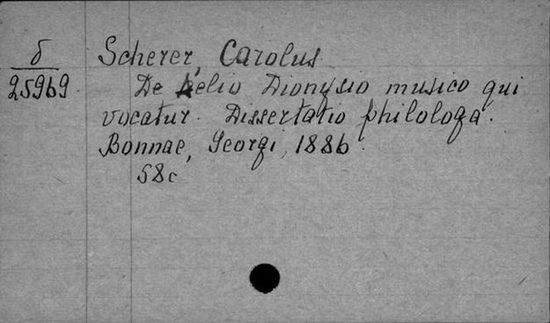 б
25969
Scherer, Carolus
De Aelio Dionysio musico qui
vocatur. Dissertatio philologa.
Bonnae, Georgi, 1886.
58c